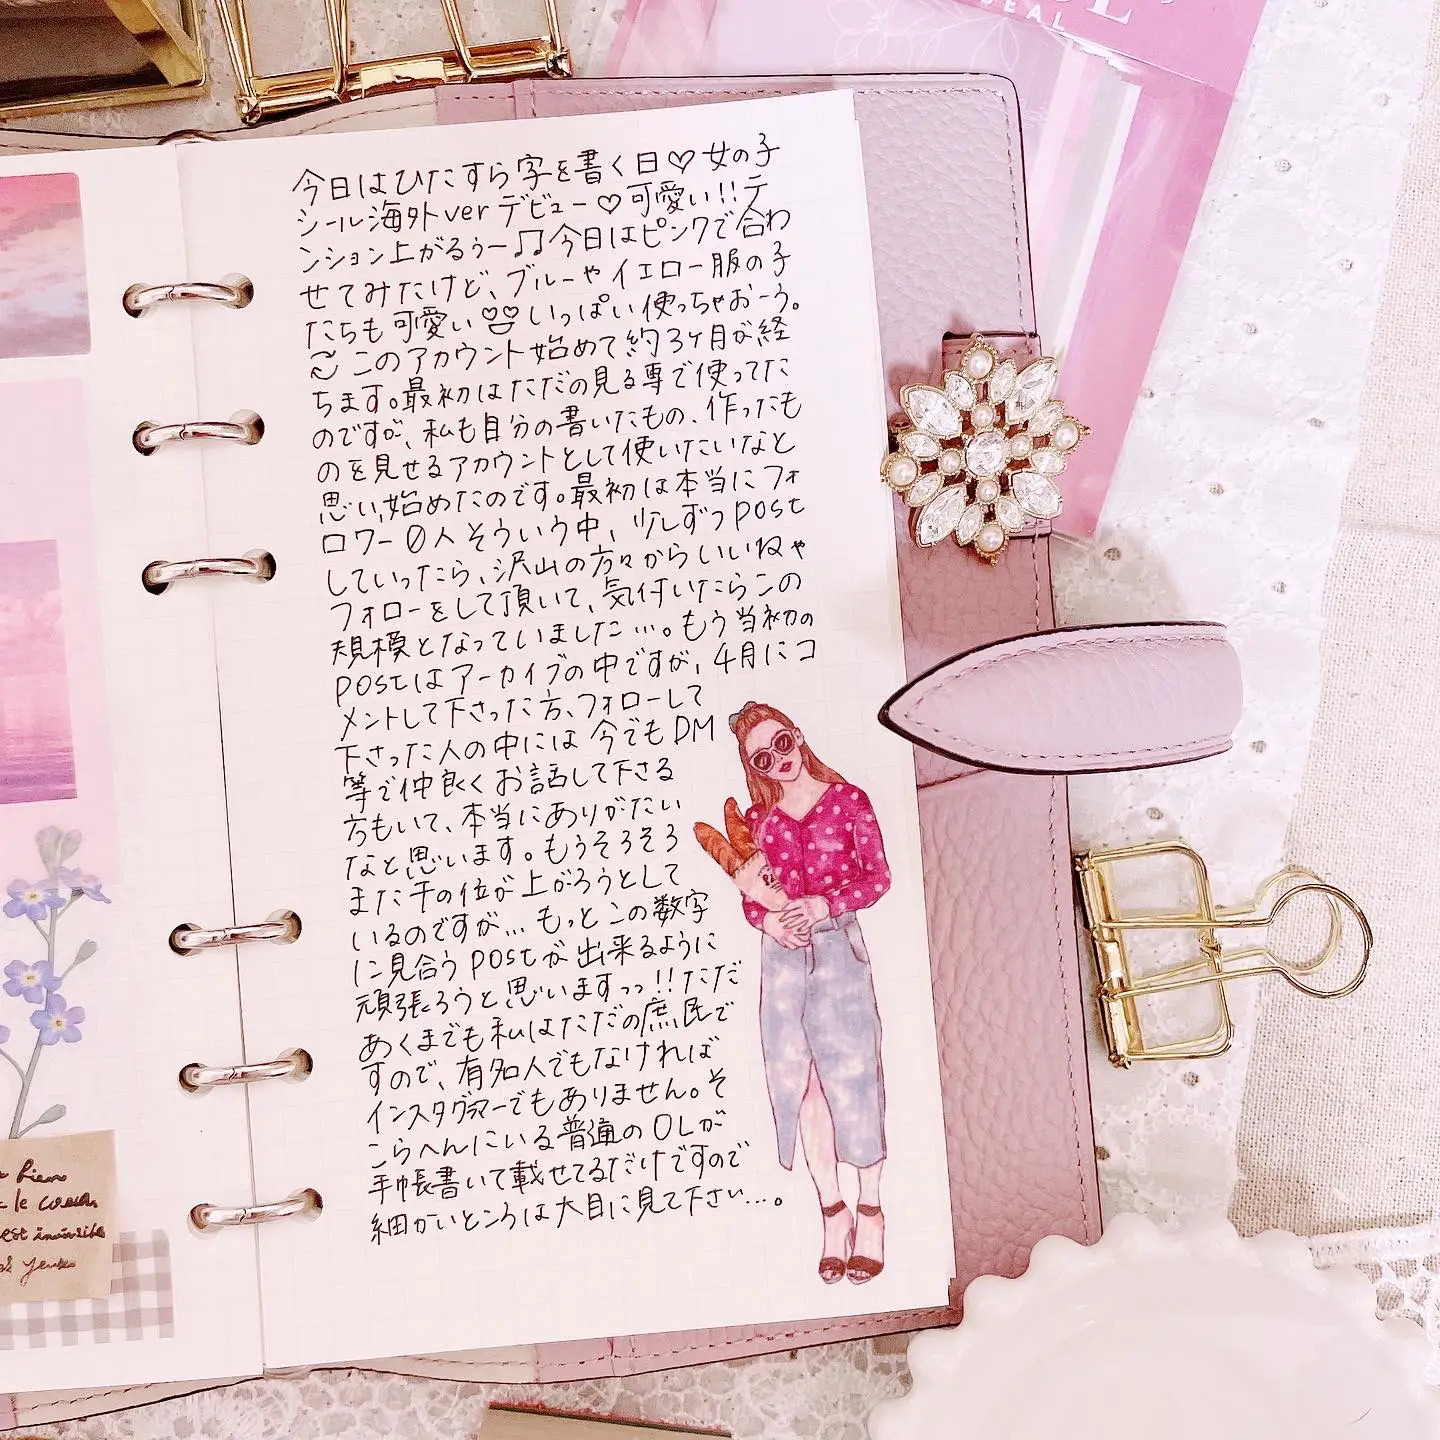 SEAL
今日はひたすら字を書く日♡女の子
シール海外verデビュー♡可愛い!!テ
ンション上がるぅー♫今日はピンクで合わ
せてみたけど、ブルーやイエロー服の子
たちも可愛いいっぱい使っちゃおーう。
このアカウント始めて約3ヶ月が経
ちます。最初はただの見る専で使ってた
のですが、私も自分の書いたもの、作ったも
のを見せるアカウントとして使いたいなと
思い、始めたのです。最初は本当にフォ
ロワー0人そういう中、少しずつpost
していったら、沢山の方々からいいねや
フォローをして頂いて、気付いたらこの
規模となっていました…。もう当初の
postはアーカイブの中ですが、4月にコ
メントして下さった方、フォローして
下さった人の中には今でもDM
等で仲良くお話して下さる
方もいて、本当にありがたい
なと思います。もうそろそろ
また千の位が上がろうとして
いるのですが…もっとこの数字
に見合うpostが出来るように
頑張ろうと思いますっっ!!ただ
あくまでも私はただの庶民で
すので、有名人でもなければ
インスタグラマーでもありません。そ
こらへんにいる普通のOLが
手帳書いて載せてるだけですので
細かいところは大目に見て下さい…。
bien
le coeur
est invisible
yeux